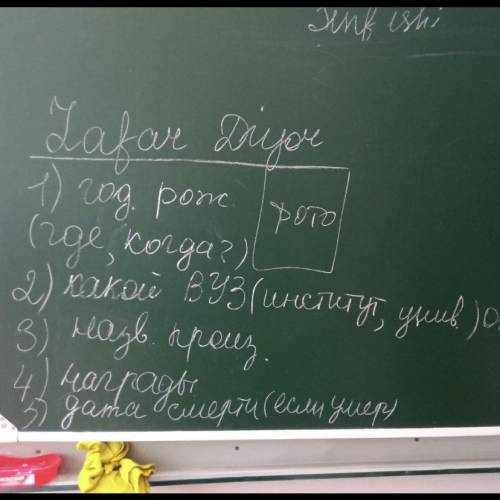 Zafar Diyor
1) год. рож.
фото
(где, когда?)
2) какой ВУЗ (институт, унив.)
3) назв. произ.
4) награды
5) дата смерти (если умер)